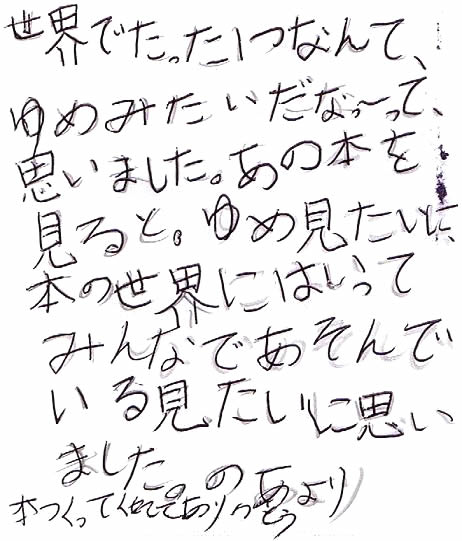 世界でたった1つなんて、
ゆめみたいだな～って、
思いました。あの本を
見ると。ゆめ見たいに、
本の世界にはいって
みんなであそんで
いる見たいに思い
ました。の
本つくってくれてあり
より